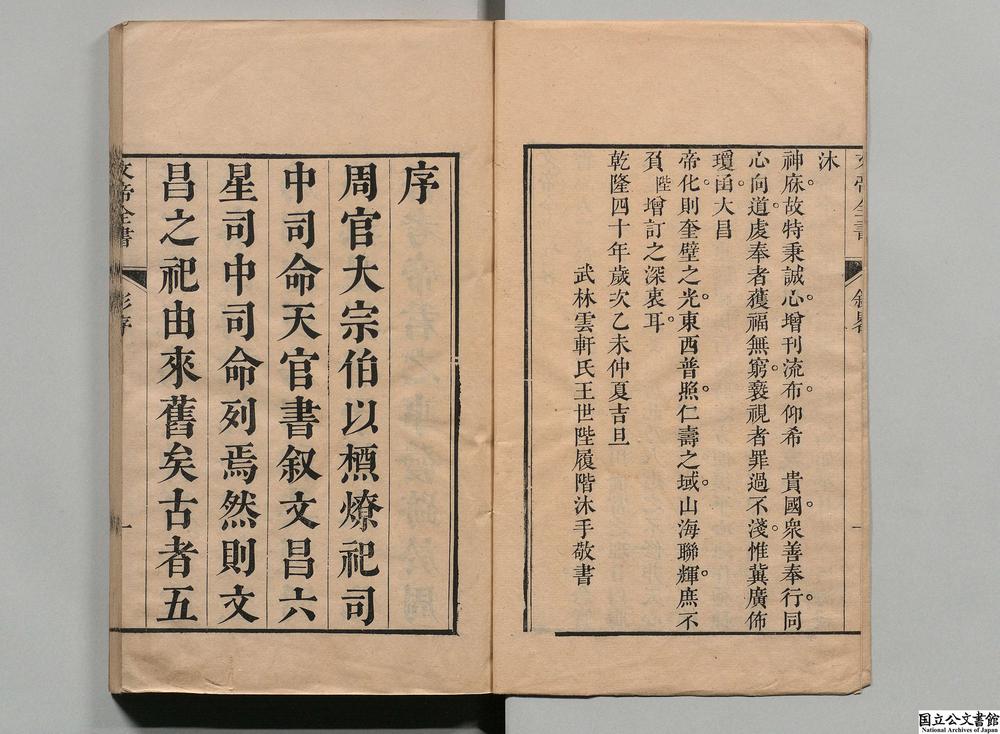 沐
神庥故特秉誠心增刊流布仰希　貴國衆善奉行同
心向道虔奉者獲福無窮褻視者罪過不淺惟冀廣佈
瓊函大昌
帝化則奎壁之光東西普照仁壽之域山海聯輝庶不
負陛增訂之深衷耳
乾隆四十年歲次乙未仲夏吉旦
武林雲軒氏王世陛履階沐手敬書
序
周官大宗伯以槱燎祀司
中司命天官書叙文昌六
星司中司命列焉然則文
昌之祀由來舊矣古者五
文帝全書
彭序
一
国立公文書館
National Archives of Japan